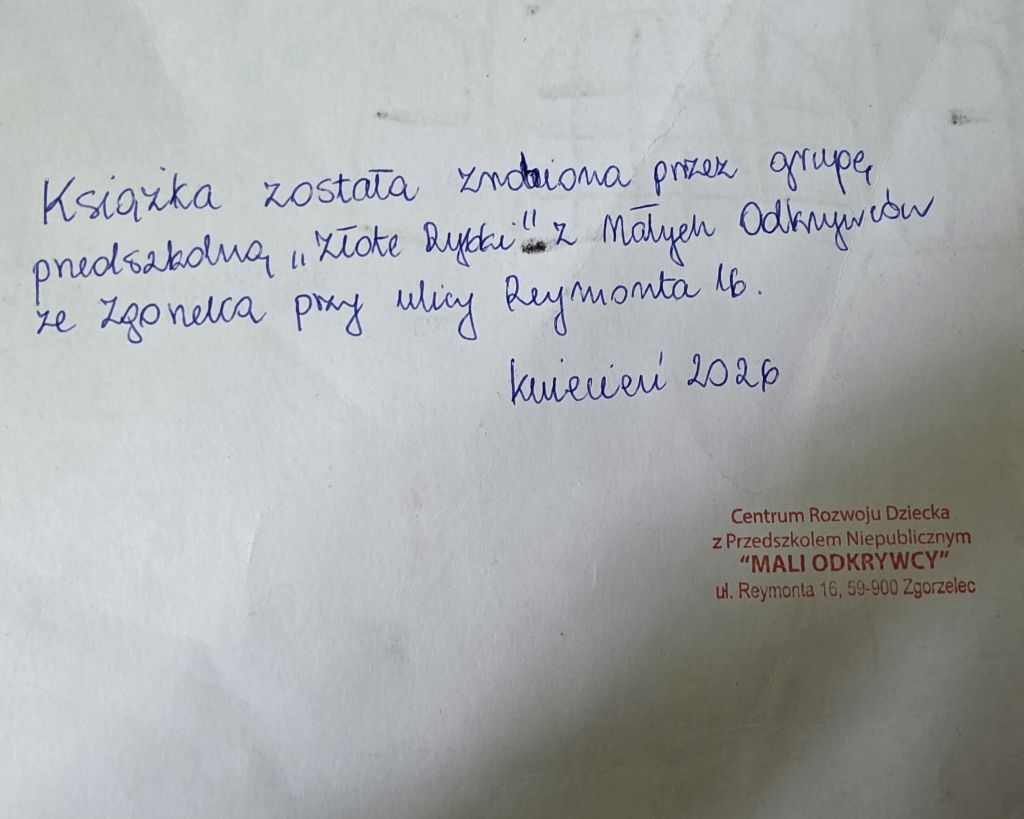 Książka została zrobiona przez grupę
przedszkolną „Złote Rybki" z Małych Odkrywców
ze Zgorzelca przy ulicy Reymonta 16.
kwiecień 2026
Centrum Rozwoju Dziecka
z Przedszkolem Niepublicznym
"MALI ODKRYWCY"
ul. Reymonta 16, 59-900 Zgorzelec